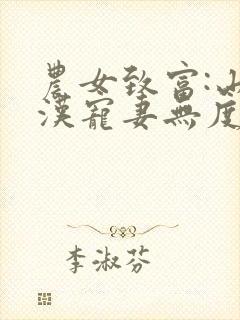 農女致富:山
漢寵妻無度
李淑芬